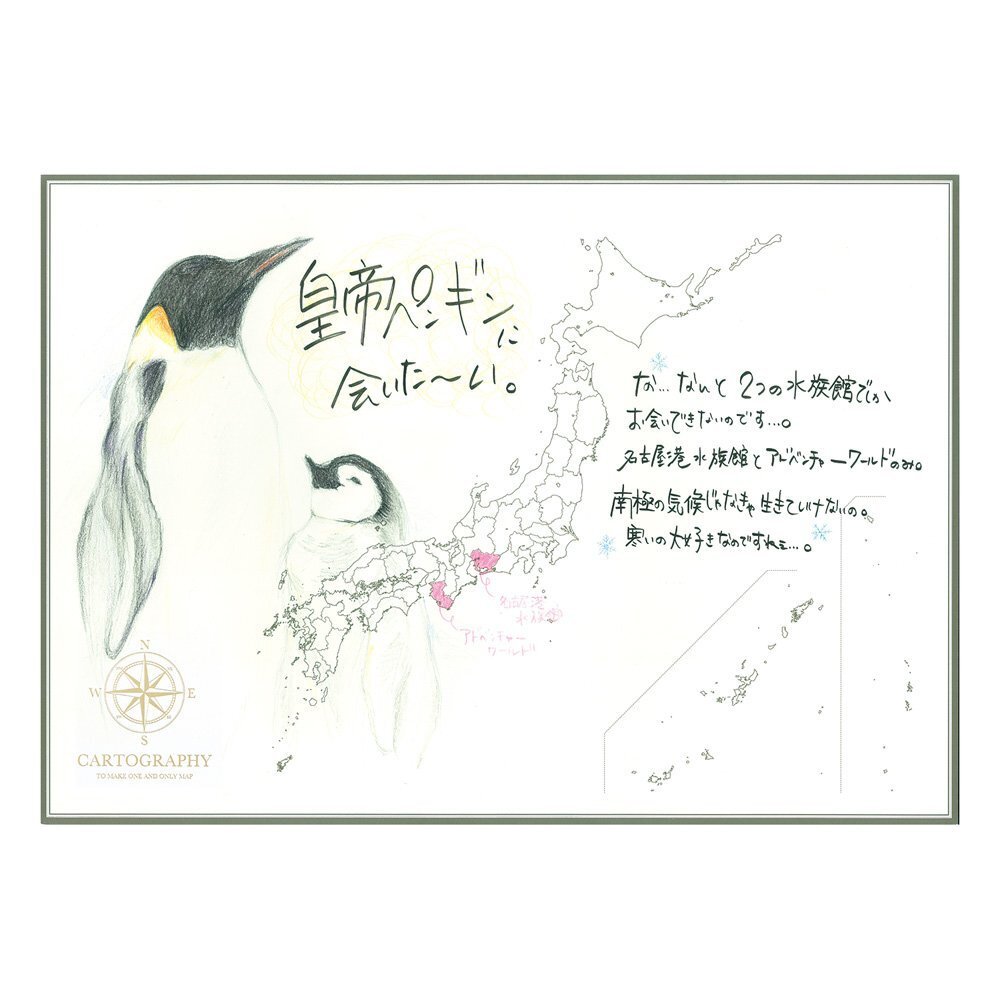 皇帝ペンギンに
会いた〜い。
な…なんと2つの水族館でしか
お会いできないのです…。
名古屋港水族館とアドベンチャーワールドのみ。
南極の気候じゃなきゃ生きていけないの。
寒いの大好きなのですねェ…。
名古屋港
水族館
アドベンチャー
ワールド
N
W E
S
CARTOGRAPHY
TO MAKE ONE AND ONLY MAP